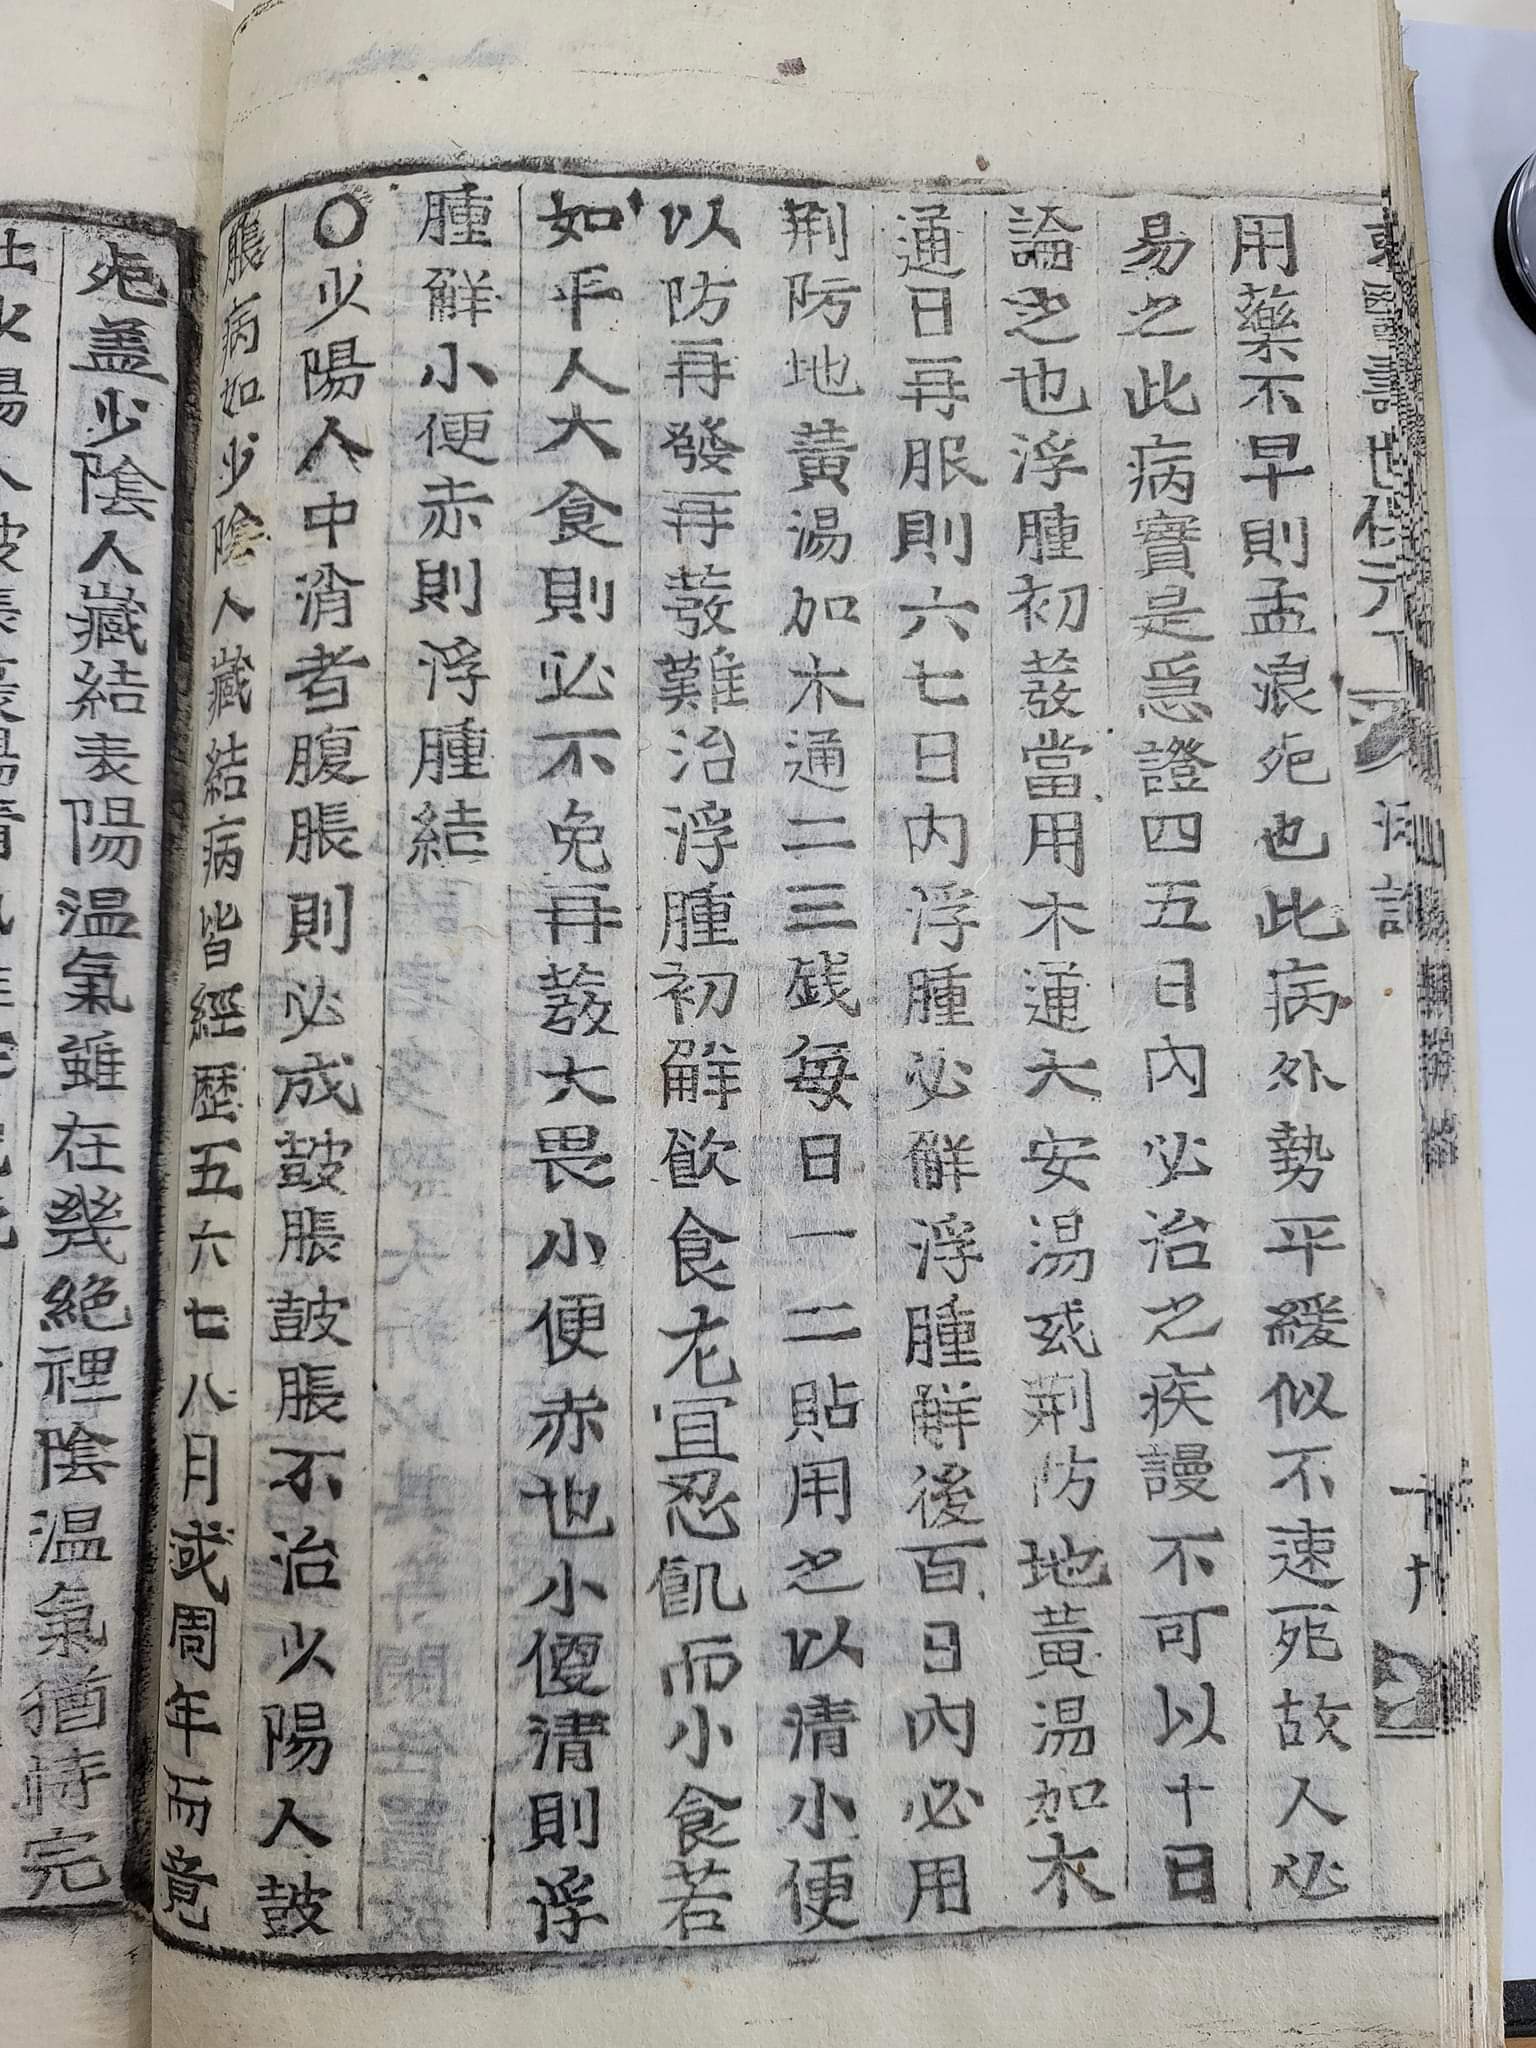 東醫壽世保元
用藥不早則孟浪死也此病外勢平緩似不速死故人必
易之此病實是急證四五日內必治之疾謾不可以十日
論之也浮腫初發當用木通大安湯或荊防地黃湯加木
通日再服則六七日内浮腫必解浮腫解後百日內必用
荊防地黃湯加木通二三戔每日一二貼用之以清小便
以防再發再發難治浮腫初解飮食尤宜忍飢而小食若
如平人大食則必不免再發大畏小便赤也小便清則浮
腫解小便赤則浮腫結
〇少陽人中消者腹脹則必成鼓脹鼓脹不治少陽人鼓
脹病如少陰人藏結病皆經歷五六七八月或周年而竟
死盖少陰人藏結表陽温氣雖在幾絕裡陰温氣猶恃完